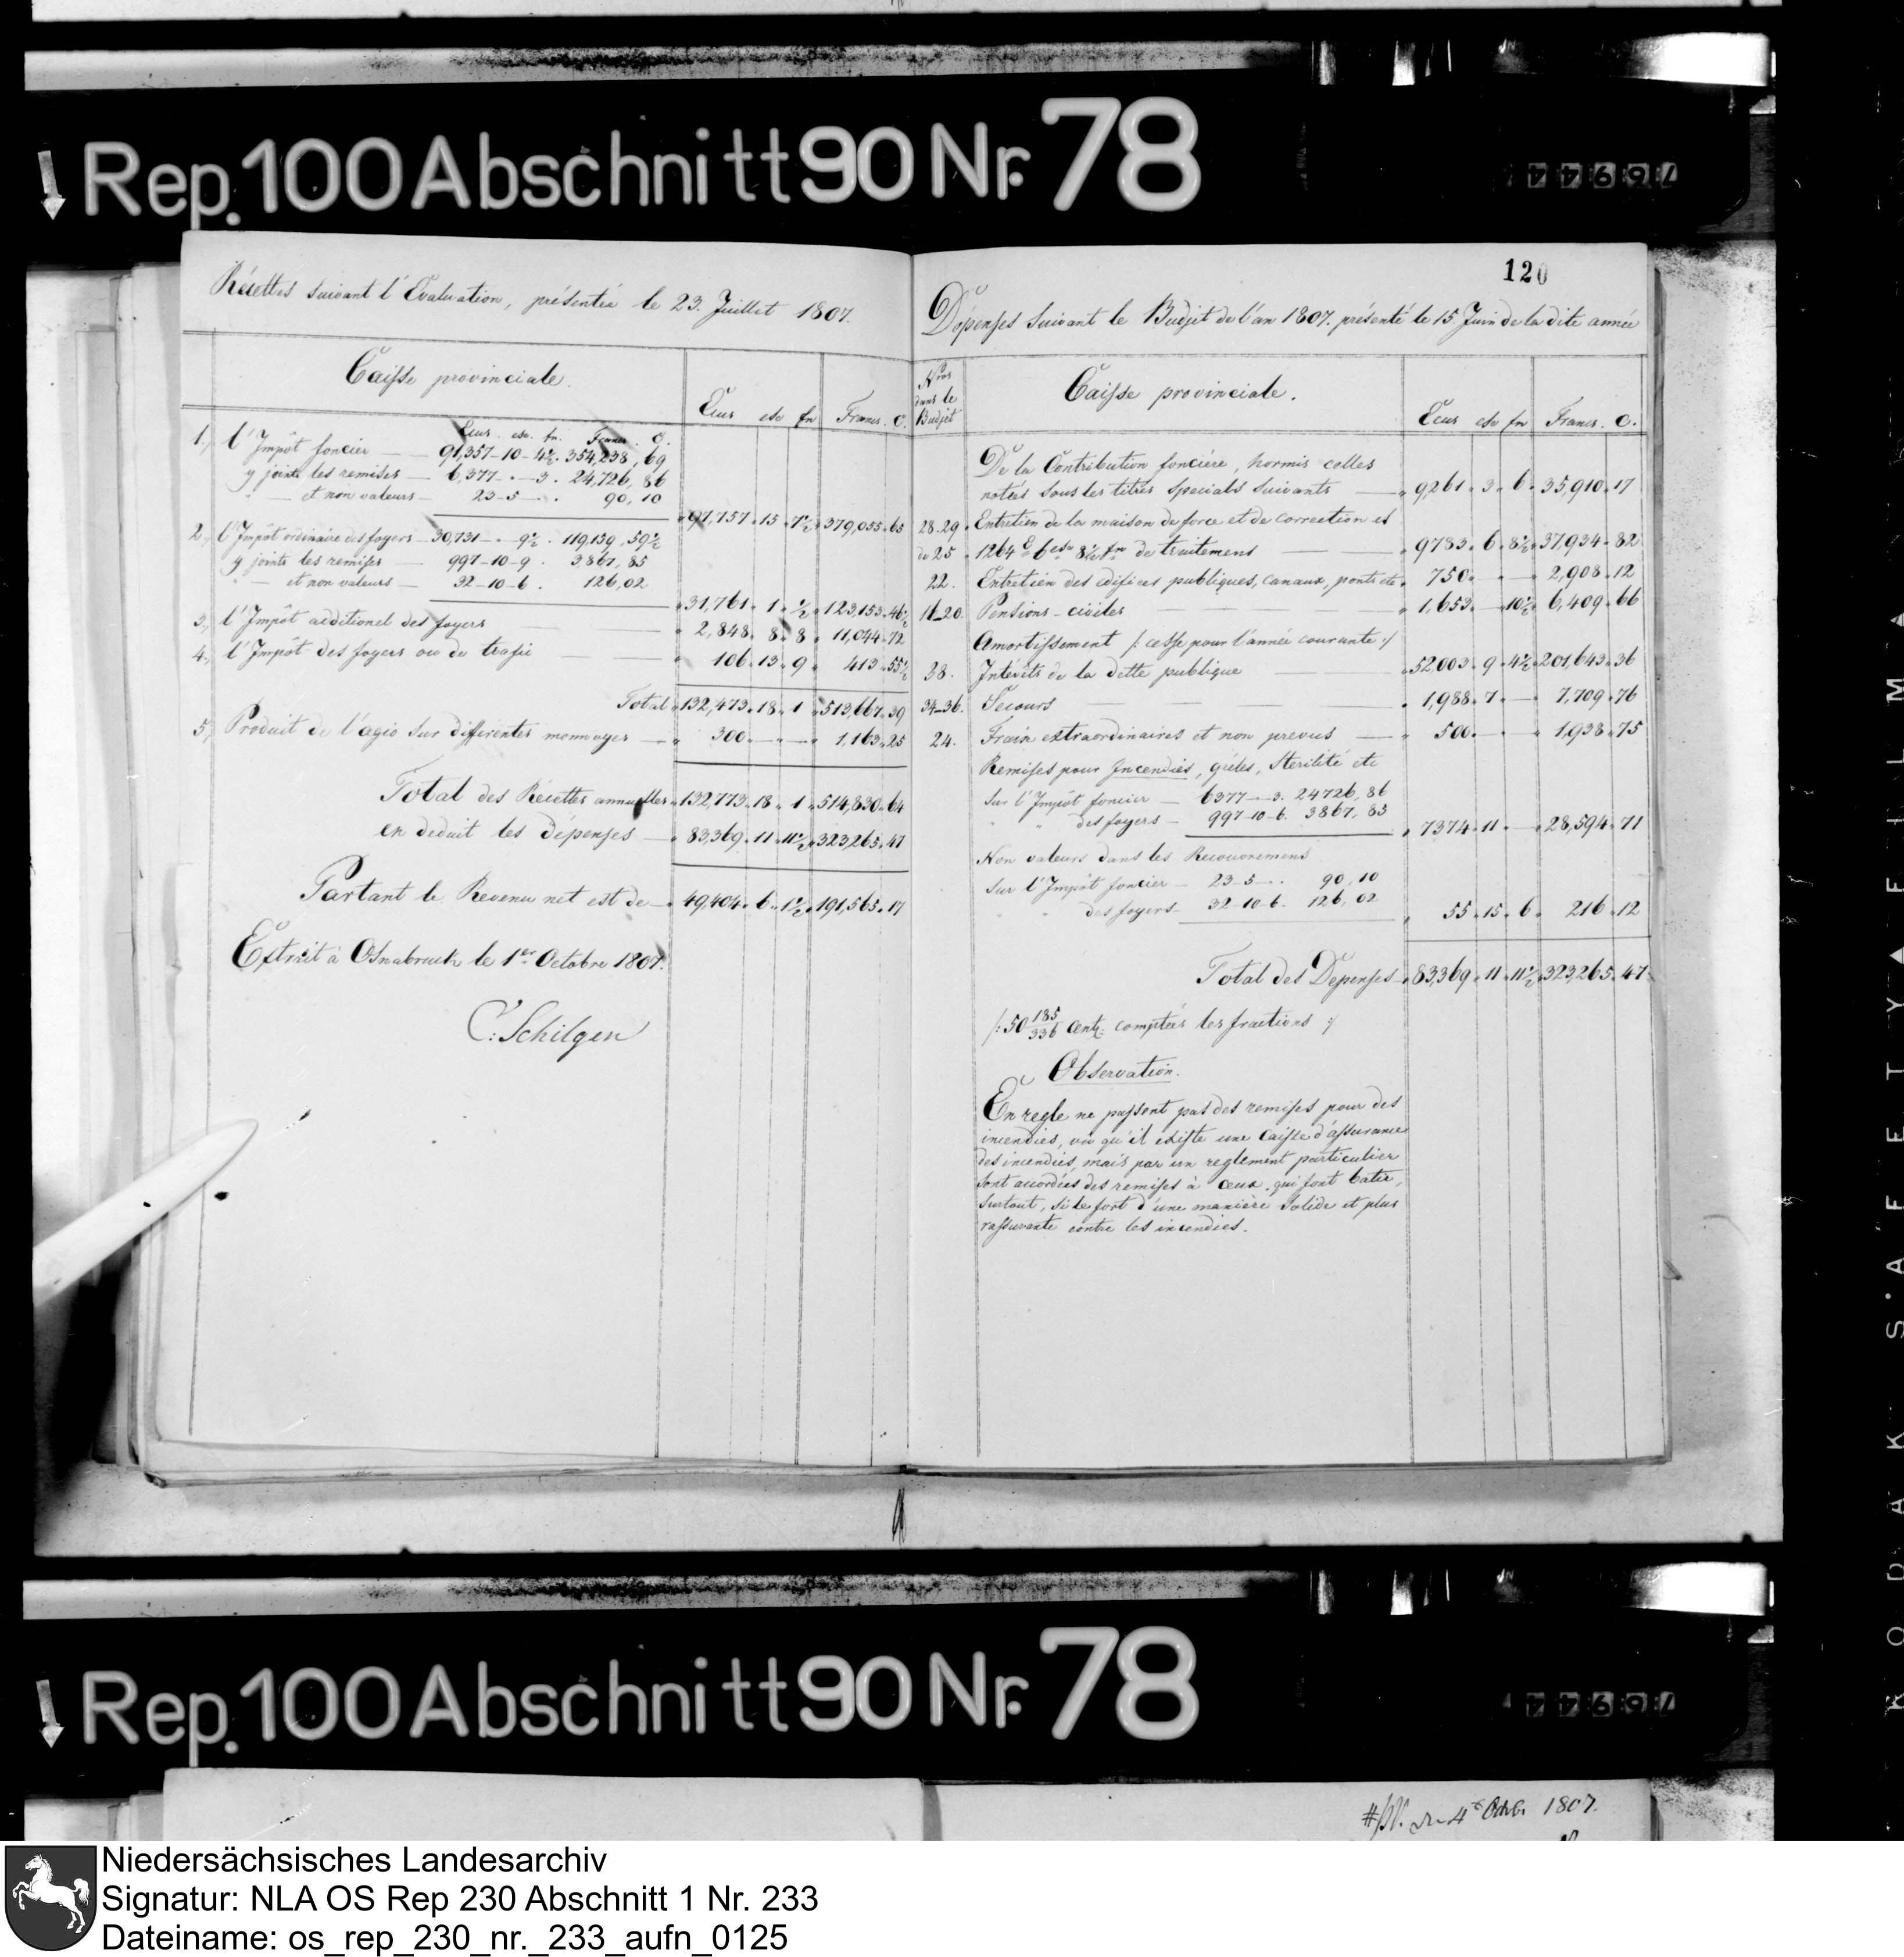 Rep. 100 Abschnitt 90 Nr. 78
76944
Récettes suivant l'Evaluation, présentée le 23. Juillet 1807.
Caisse provinciale.
Ecus esc fn Francs. C.
Ecus. esc. fn. Francs. C.
1., l'Impôt foncier — 91,357-10-4½. 354,238,69
y joints les remises — 6,377-.-3. 24,726,86
" — et non valeurs — 23-5-. . 90,10
97,757.15.7½.379,055.65
2., l'Impôt ordinaire des foyers — 30,731-.-9½. 119,159,59½
y joints les remises — 997-10-9. 3,867,85
" — et non valeurs — 32-10-6. 126,02
31,761.1.½.123,153.46½
3., l'Impôt additionel des foyers — 2,848.8.8. 11,044.72
4., l'Impôt des foyers ou de trafic — 106.13.9. 413.55½
Total 132,473.18.1.513,667.39
5., Produit de l'agio sur differentes monnoyes — 300.—.—. 1,163.25
Total des Récettes annuelles 132,773.18.1.514,830.64
en deduit les dépenses — 83369.11.11½.323265.47
Partant le Revenu net est de — 49,404.6.1½.191,565.17
Extrait à Osnabruck le 1er Octobre 1807.
C: Schilgen
120
Dépenses suivant le Budjet de l'an 1807. présenté le 15 Juin de la dite année
Nros dans le Budjet
Caisse provinciale.
Ecus esc fn Francs. C.
De la Contribution foncière, hormis celles
notées sous les titres specials suivants — 9,261.3.6.35,910.17
28.29. Entretien de la maison de force et de correction et
de 25. 1264 E 6 esc 8½ fn de traitement — 9783.6.8½.37,934.82
22. Entretien des edifices publiques, canaux, ponts etc. 750.—.—.2,908.12
16_20. Pensions civiles — 1,653.—.10½.6,409.66
Amortissement /: cesse pour l'année courante :/
38. Intérêts de la dette publique — 52,003.9.4½.201,643.36
34-36. Secours — 1,988.7.—.7,709.76
24. Frais extraordinaires et non prevus — 500.—.—.1,938.75
Remises pour Incendies, grêles, Sterilité etc
sur l'Impôt foncier — 6377-.-3. 24726,86
" " des foyers — 997-10-6. 3867,85
7374.11.—.28,594.71
Non valeurs dans les Recouvremens
sur l'Impôt foncier — 23-5-.. 90,10
" des foyers — 32-10-6. 126,02
55.15.6. 216.12
Total des Depenses 83,369.11.11½.323,265.47
/: 50 185/336 Cent: comptées les fractions :/
Observation.
En regle ne passent pas des remises pour des
incendies, vu qu'il existe une Caisse d'assurance
des incendies, mais par un reglement particulier
sont accordées des remises à ceux, qui font batir,
surtout, si le font d'une manière solide et plus
rassurante contre les incendies.
Rep. 100 Abschnitt 90 Nr. 78
76944
1807.
KODAK SAFETY FILM
Niedersächsisches Landesarchiv
Signatur: NLA OS Rep 230 Abschnitt 1 Nr. 233
Dateiname: os_rep_230_nr._233_aufn_0125